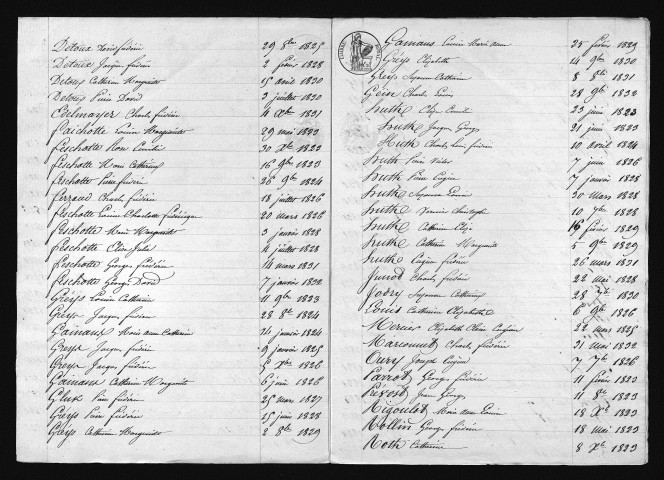 Detoux Louis frédéric 29 8bre 1825
Detoux Jacques frédéric 2 février 1828
Detoux Catherine Marguerite 15 avril 1830
Detoux Pierre David 3 juillet 1830
Edelmayer Charles frédéric 4 Xbre 1831
faichotte Louise Marguerite 29 mai 1823
feschotte 30 Xbre 1823
feschotte Catherine 16 9bre 1823
feschotte Pierre frédéric 26 9bre 1824
ferrand Charles frédéric 18 juillet 1826
feschotte Louise Charlotte frédérique 20 mars 1826
feschotte Marie Marguerite 3 janvier 1828
feschotte Julie 4 juillet 1828
feschotte Georges frédéric 14 mars 1831
feschotte Georges David 7 janvier 1832
Greys Louise Catherine 11 9bre 1823
Greys Jacques frédéric 28 8bre 1824
Gainaux Marie anne Catherine 24 janvier 1824
Greys Jacques frédéric 9 janvier 1825
Greys Jacques frédéric 5 Xbre 1826
Gainans Catherine Marguerite 6 juin 1826
Glux Pierre frédéric 25 mars 1827
Greys Pierre frédéric 25 juin 1828
Greys Catherine Marguerite 2 8bre 1829
Gainans Louise Marie anne 25 février 1829
Greys Elizabeth 14 9bre 1830
Greys Suzanne Catherine 8 8bre 1831
Geisse Charles Louis 28 9bre 1832
huth 23 juin 1823
huth Jacques Georges 21 juin 1823
Huth Charles Louis frédéric 10 avril 1824
huth Pierre 7 juin 1826
huth Pierre Eugène 7 janvier 1828
huth Suzanne Louise 30 mars 1828
huth Christophe 10 7bre 1828
huth Catherine 16 février 1829
huth Catherine Marguerite 5 9bre 1829
huth Eugène frédéric 26 mars 1831
Junod Charles frédéric 22 mai 1828
Jodry Suzanne Catherine 28 1830
Louis Catherine Elizabeth 6 9bre 1826
Mercier Elizabeth 22 mars 1825
Marconnet Charles frédéric 31 mai 1832
Oury Joseph Eugène 7 7bre 1826
Parrot Georges frédéric 11 février 1823
Prévost Jean Georges 11 8bre 1823
Rigoulot Marie anne Louise 18 Xbre 1823
Rollin Georges frédéric 18 mai 1823
Roth Catherine 8 Xbre 1823